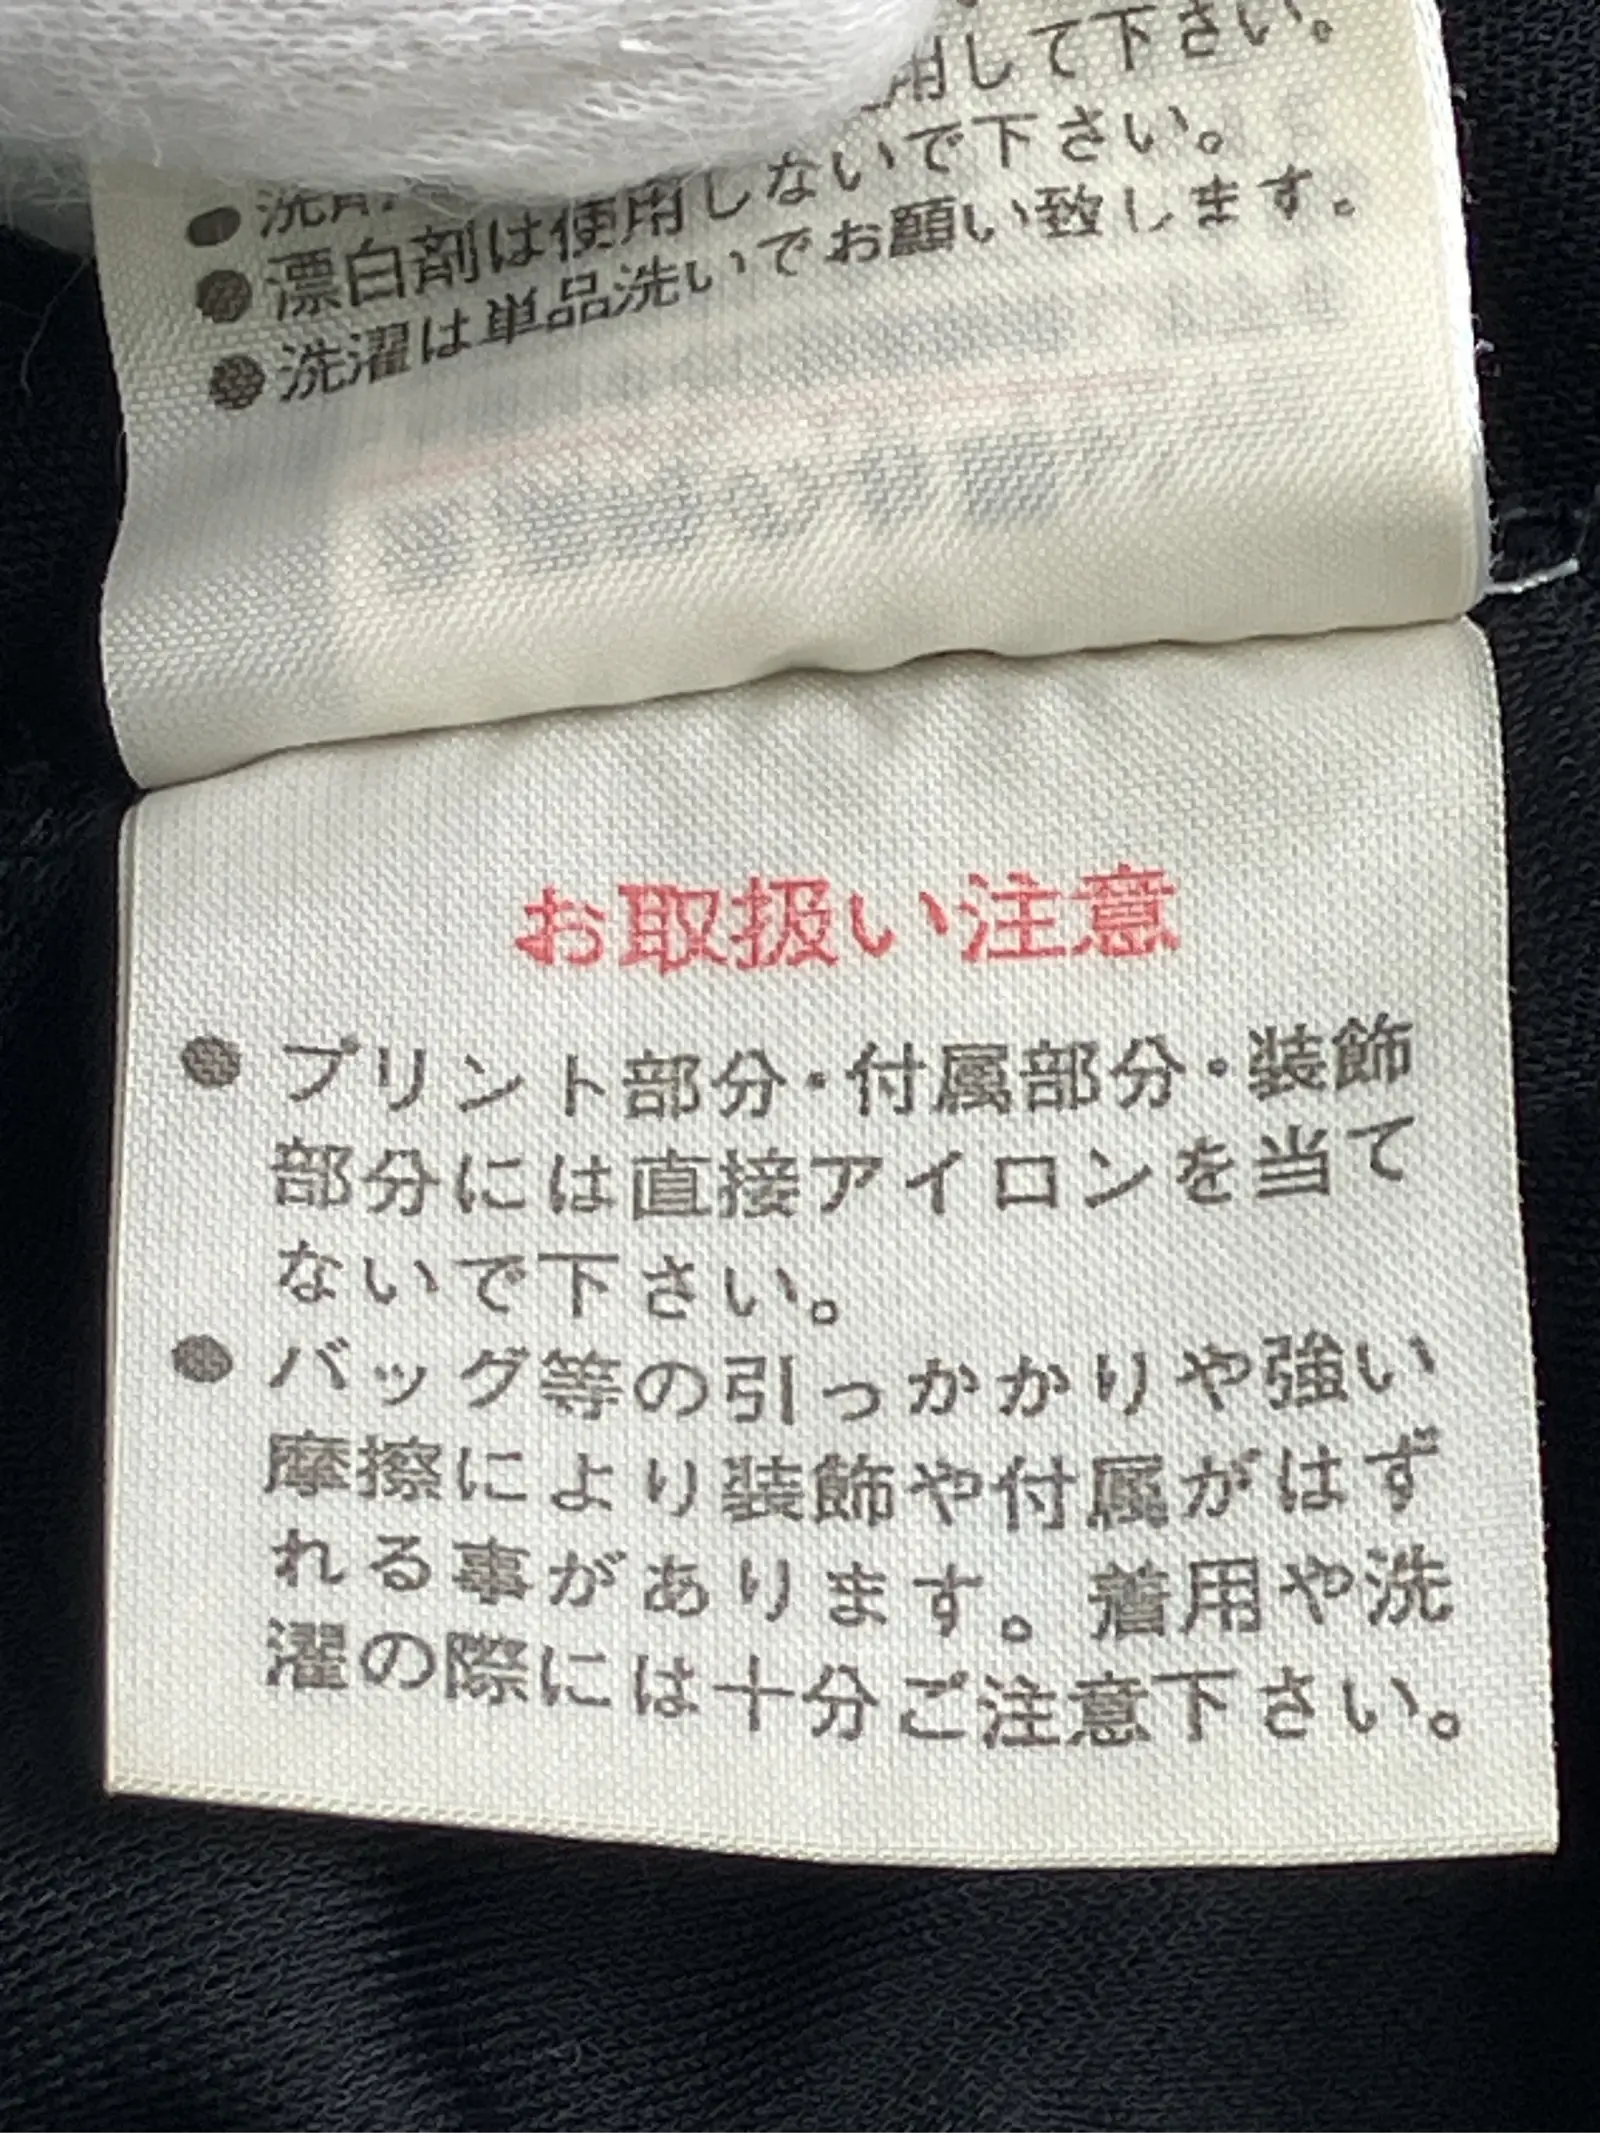 用して下さい。
● 洗剤
● 漂白剤は使用しないで下さい。
● 洗濯は単品洗いでお願い致します。
お取扱い注意
● プリント部分・付属部分・装飾
部分には直接アイロンを当て
ないで下さい。
● バッグ等の引っかかりや強い
摩擦により装飾や付属がはず
れる事があります。着用や洗
濯の際には十分ご注意下さい。